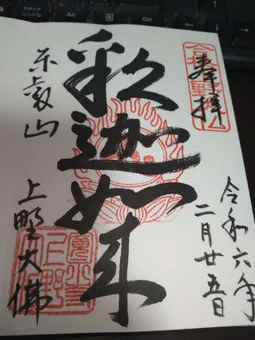 奉拝
令和六年
二月廿五日
釈迦如来
東叡山
上野大佛